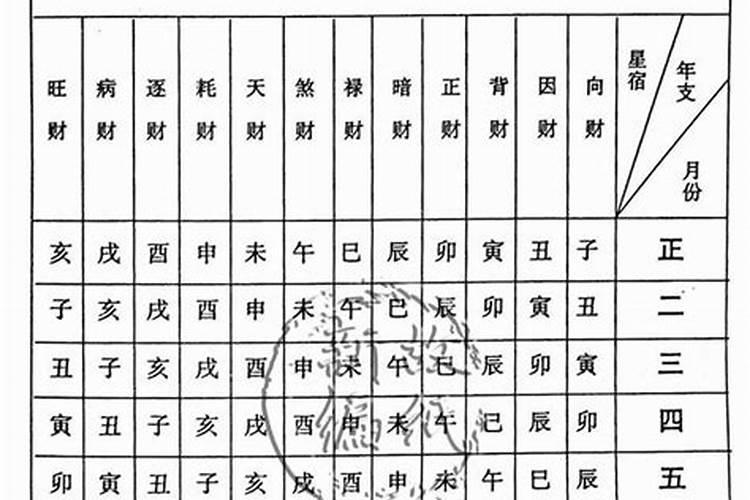 星宿 年支 月份
向财 因财 背财 正财 暗财 禄财 煞财 天财 耗财 逐财 病财 旺财
正 子 丑 寅 卯 辰 巳 午 未 申 酉 戌 亥
二 丑 寅 卯 辰 巳 午 未 申 酉 戌 亥 子
三 寅 卯 辰 巳 午 未 申 酉 戌 亥 子 丑
四 卯 辰 巳 午 未 申 酉 戌 亥 子 丑 寅
五 辰 巳 午 未 申 酉 戌 亥 子 丑 寅 卯